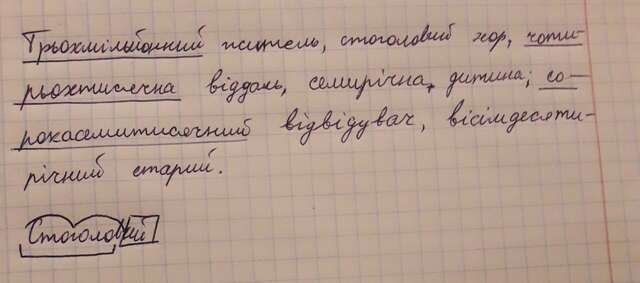 Трьохмільйонний житель, стоголовий хор, чоти-
рьохтисячна віддаль, семирічна, дитина; со-
рокасемитисячний відвідувач, вісімдесяти-
річний старий.
Стоголовий